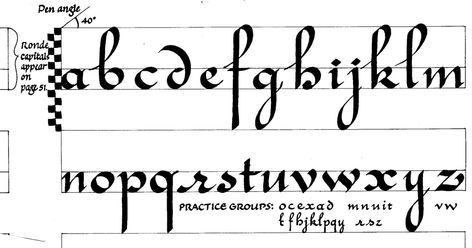 Pen angle
40°
Ronde
capitals
appear
on
page 51.
abcdefghijklm
nopqrstuvwxyz
PRACTICE GROUPS: ocexad mnuit vw
tfbhjklpqy rsz